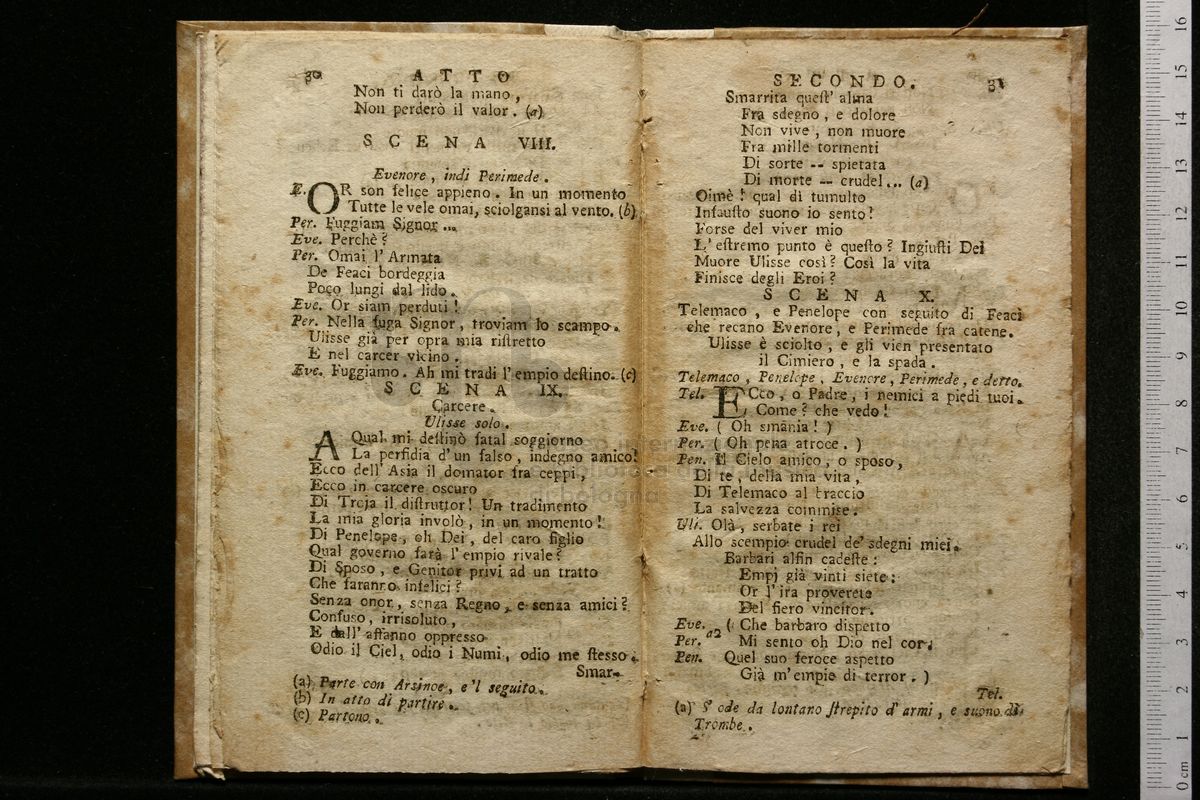 30 ATTO
Non ti darò la mano,
Non perderò il valor. (a)
SCENA VIII.
Evenore, indi Perimede.
E. OR son felice appieno. In un momento
Tutte le vele omai, sciolgansi al vento. (b)
Per. Fuggiam Signor ...
Eve. Perchè?
Per. Omai l'Armata
De Feaci bordeggia
Poco lungi dal lido.
Eve. Or siam perduti!
Per. Nella fuga Signor, troviam lo scampo.
Ulisse già per opra mia ristretto
E nel carcer vicino.
Eve. Fuggiamo. Ah mi tradì l'empio destino. (c)
SCENA IX.
Carcere.
Ulisse solo.
A Qual mi destinò fatal soggiorno
La perfidia d'un falso, indegno amico!
Ecco dell'Asia il domator fra ceppi,
Ecco in carcere oscuro
Di Troja il distruttor! Un tradimento
La mia gloria involò, in un momento!
Di Penelope, oh Dei, del caro figlio
Qual governo farà l'empio rivale?
Di Sposo, e Genitor privi ad un tratto
Che faranno infelici?
Senza onor, senza Regno, e senza amici?
Confuso, irrisoluto,
E dall'affanno oppresso
Odio il Ciel, odio i Numi, odio me stesso.
Smar-
(a) Parte con Arsinoe, e'l seguito.
(b) In atto di partire.
(c) Partono.
SECONDO. 31
Smarrita quest'alma
Fra sdegno, e dolore
Non vive, non muore
Fra mille tormenti
Di sorte -- spietata
Di morte -- crudel... (a)
Oimè! qual di tumulto
Infausto suono io sento!
Forse del viver mio
L'estremo punto è questo? Ingiusti Dei
Muore Ulisse così? Così la vita
Finisce degli Eroi?
SCENA X.
Telemaco, e Penelope con seguito di Feaci
che recano Evenore, e Perimede fra catene.
Ulisse è sciolto, e gli vien presentato
il Cimiero, e la spada.
Telemaco, Penelope, Evenore, Perimede, e detto.
Tel. ECco, o Padre, i nemici a piedi tuoi.
Come? che vedo!
Eve. (Oh smania!)
Per. (Oh pena atroce.)
Pen. Il Cielo amico, o sposo,
Di te, della mia vita,
Di Telemaco al braccio
La salvezza commise.
Uli. Olà, serbate i rei
Allo scempio crudel de' sdegni miei.
Barbari alfin cadeste:
Empj già vinti siete:
Or l'ira proverete
Del fiero vincitor.
Eve. ( Che barbaro dispetto
Per. a2 Mi sento oh Dio nel cor.
Pen. Quel suo feroce aspetto
Già m'empie di terror. )
Tel.
(a) S'ode da lontano strepito d'armi, e suono di
Trombe.